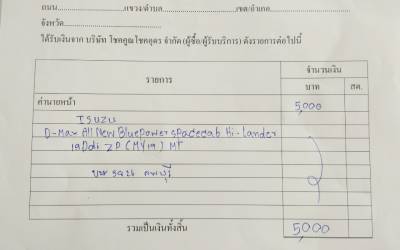 ถนน....................แขวง/ตำบล....................เขต/อำเภอ....................
จังหวัด....................
ได้รับเงินจาก บริษัท โชคคูณโชคอุดร จำกัด (ผู้ซื้อ/ผู้รับบริการ) ดังรายการต่อไปนี้
รายการ จำนวนเงิน
บาท สต.
ค่านายหน้า 5,000
ISUZU
D-Max All New Bluepower spacecab Hi-Lander
19Ddi ZP (MY19) MT
รวมเป็นเงินทั้งสิ้น 5,000